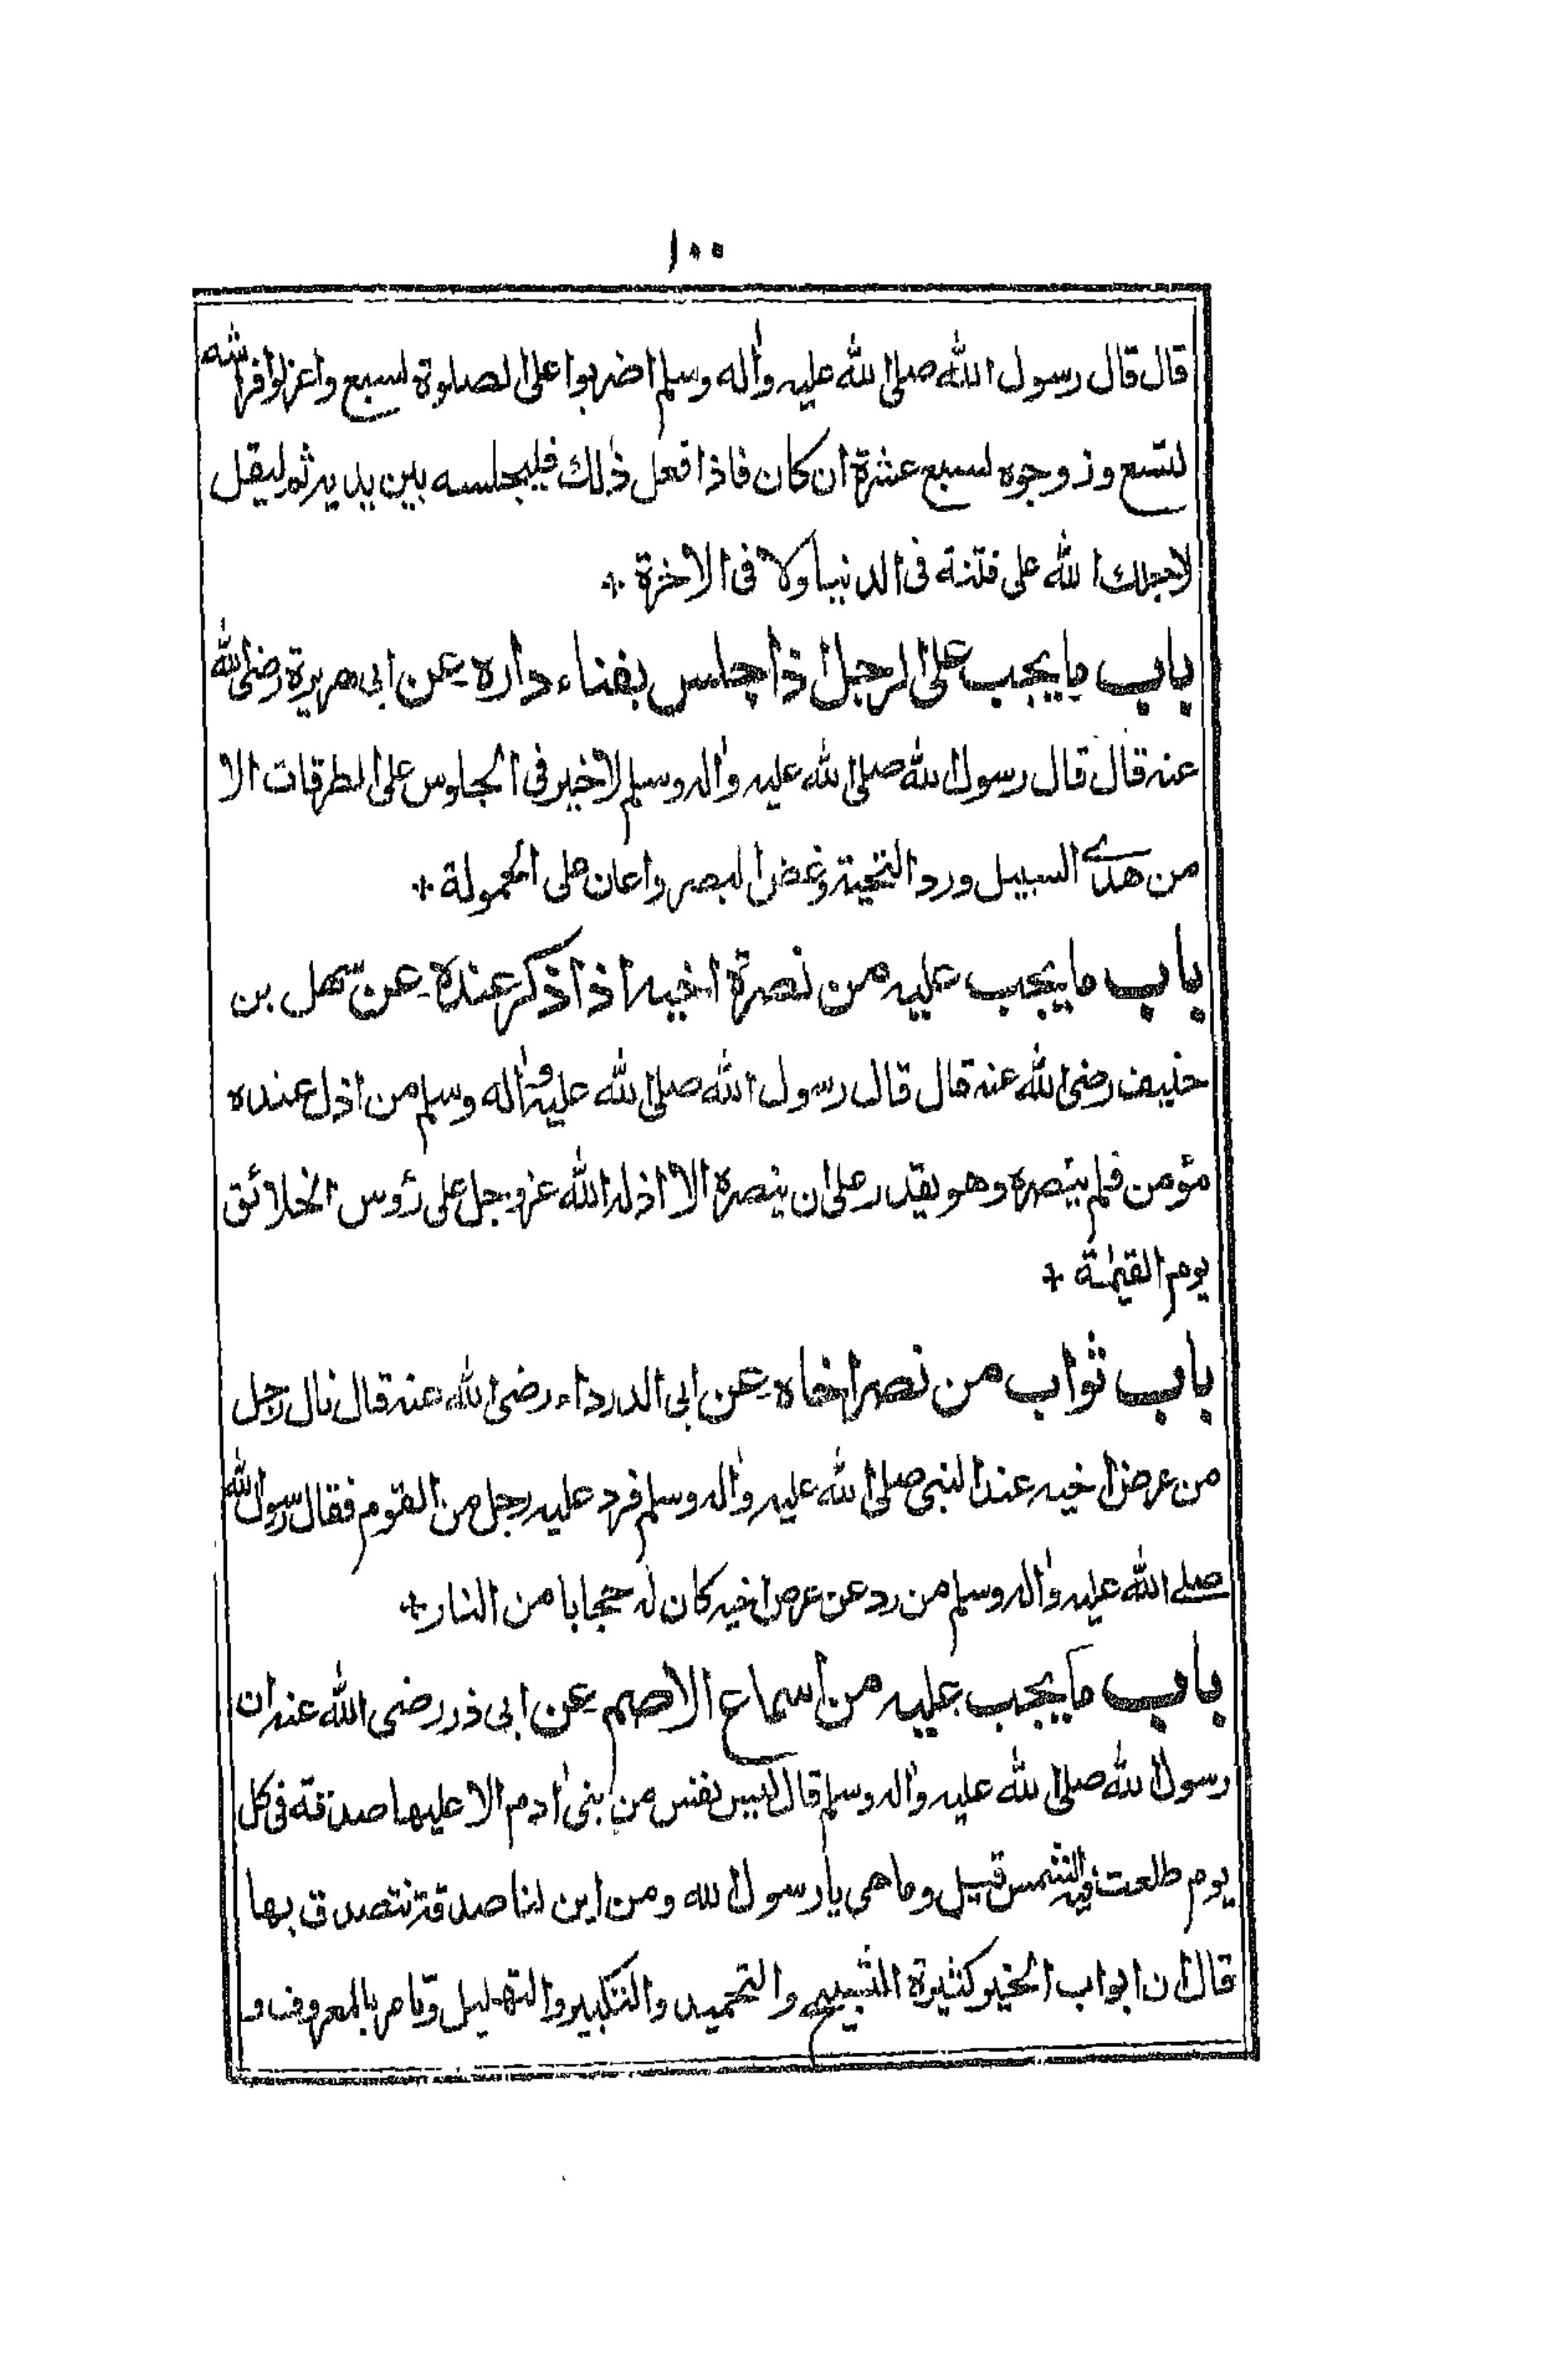 ١٠٠
قال قال رسول الله صلى الله عليه واٰله وسلم اضربوا على الصلوة لسبع واعزلوا فراشه
لتسع وزوجوه لسبع عشرة ان كان فاذا فعل ذٰلك فليجلسه بين يديه ثم ليقل
لاجعلك الله على فتنة فى الدنيا ولا فى الاخرة +
باب ما يجب على الرجل اذا جلس بفناء داره عن ابى هريرة رضى الله
عنه قال قال رسول الله صلى الله عليه واٰله وسلم لاخير فى الجلوس على الطرقات الا
من هدى السبيل ورد التحية وغض البصر واعان على الحمولة +
باب ما يجب عليه من نصرة اخيه اذا ذكر عنده عن سهل بن
حنيف رضى الله عنه قال قال رسول الله صلى الله عليه واٰله وسلم من اذل عنده
مؤمن فلم ينصره وهو يقدر على ان ينصره الا اذله الله عز وجل على رؤس الخلائق
يوم القيٰمة +
باب ثواب من نصر اخاه عن ابى الدرداء رضى الله عنه قال نال رجل
من عرض اخيه عند النبى صلى الله عليه واٰله وسلم فرد عليه رجل من القوم فقال رسول الله
صلے الله عليه واٰله وسلم من رد عن عرض اخيه كان له حجابا من النار +
باب ما يجب عليه من اسماع الاصم عن ابى ذر رضى الله عنه ان
رسول الله صلى الله عليه واٰله وسلم قال ليس نفس من بنى اٰدم الا عليها صدقة فى كل
يوم طلعت فيه الشمس قيل وما هى يا رسول الله ومن اين لنا صدقة نتصدق بها
قال ان ابواب الخير كثيرة التسبيح والتحميد والتكبير والتهليل وتامر بالمعروف و